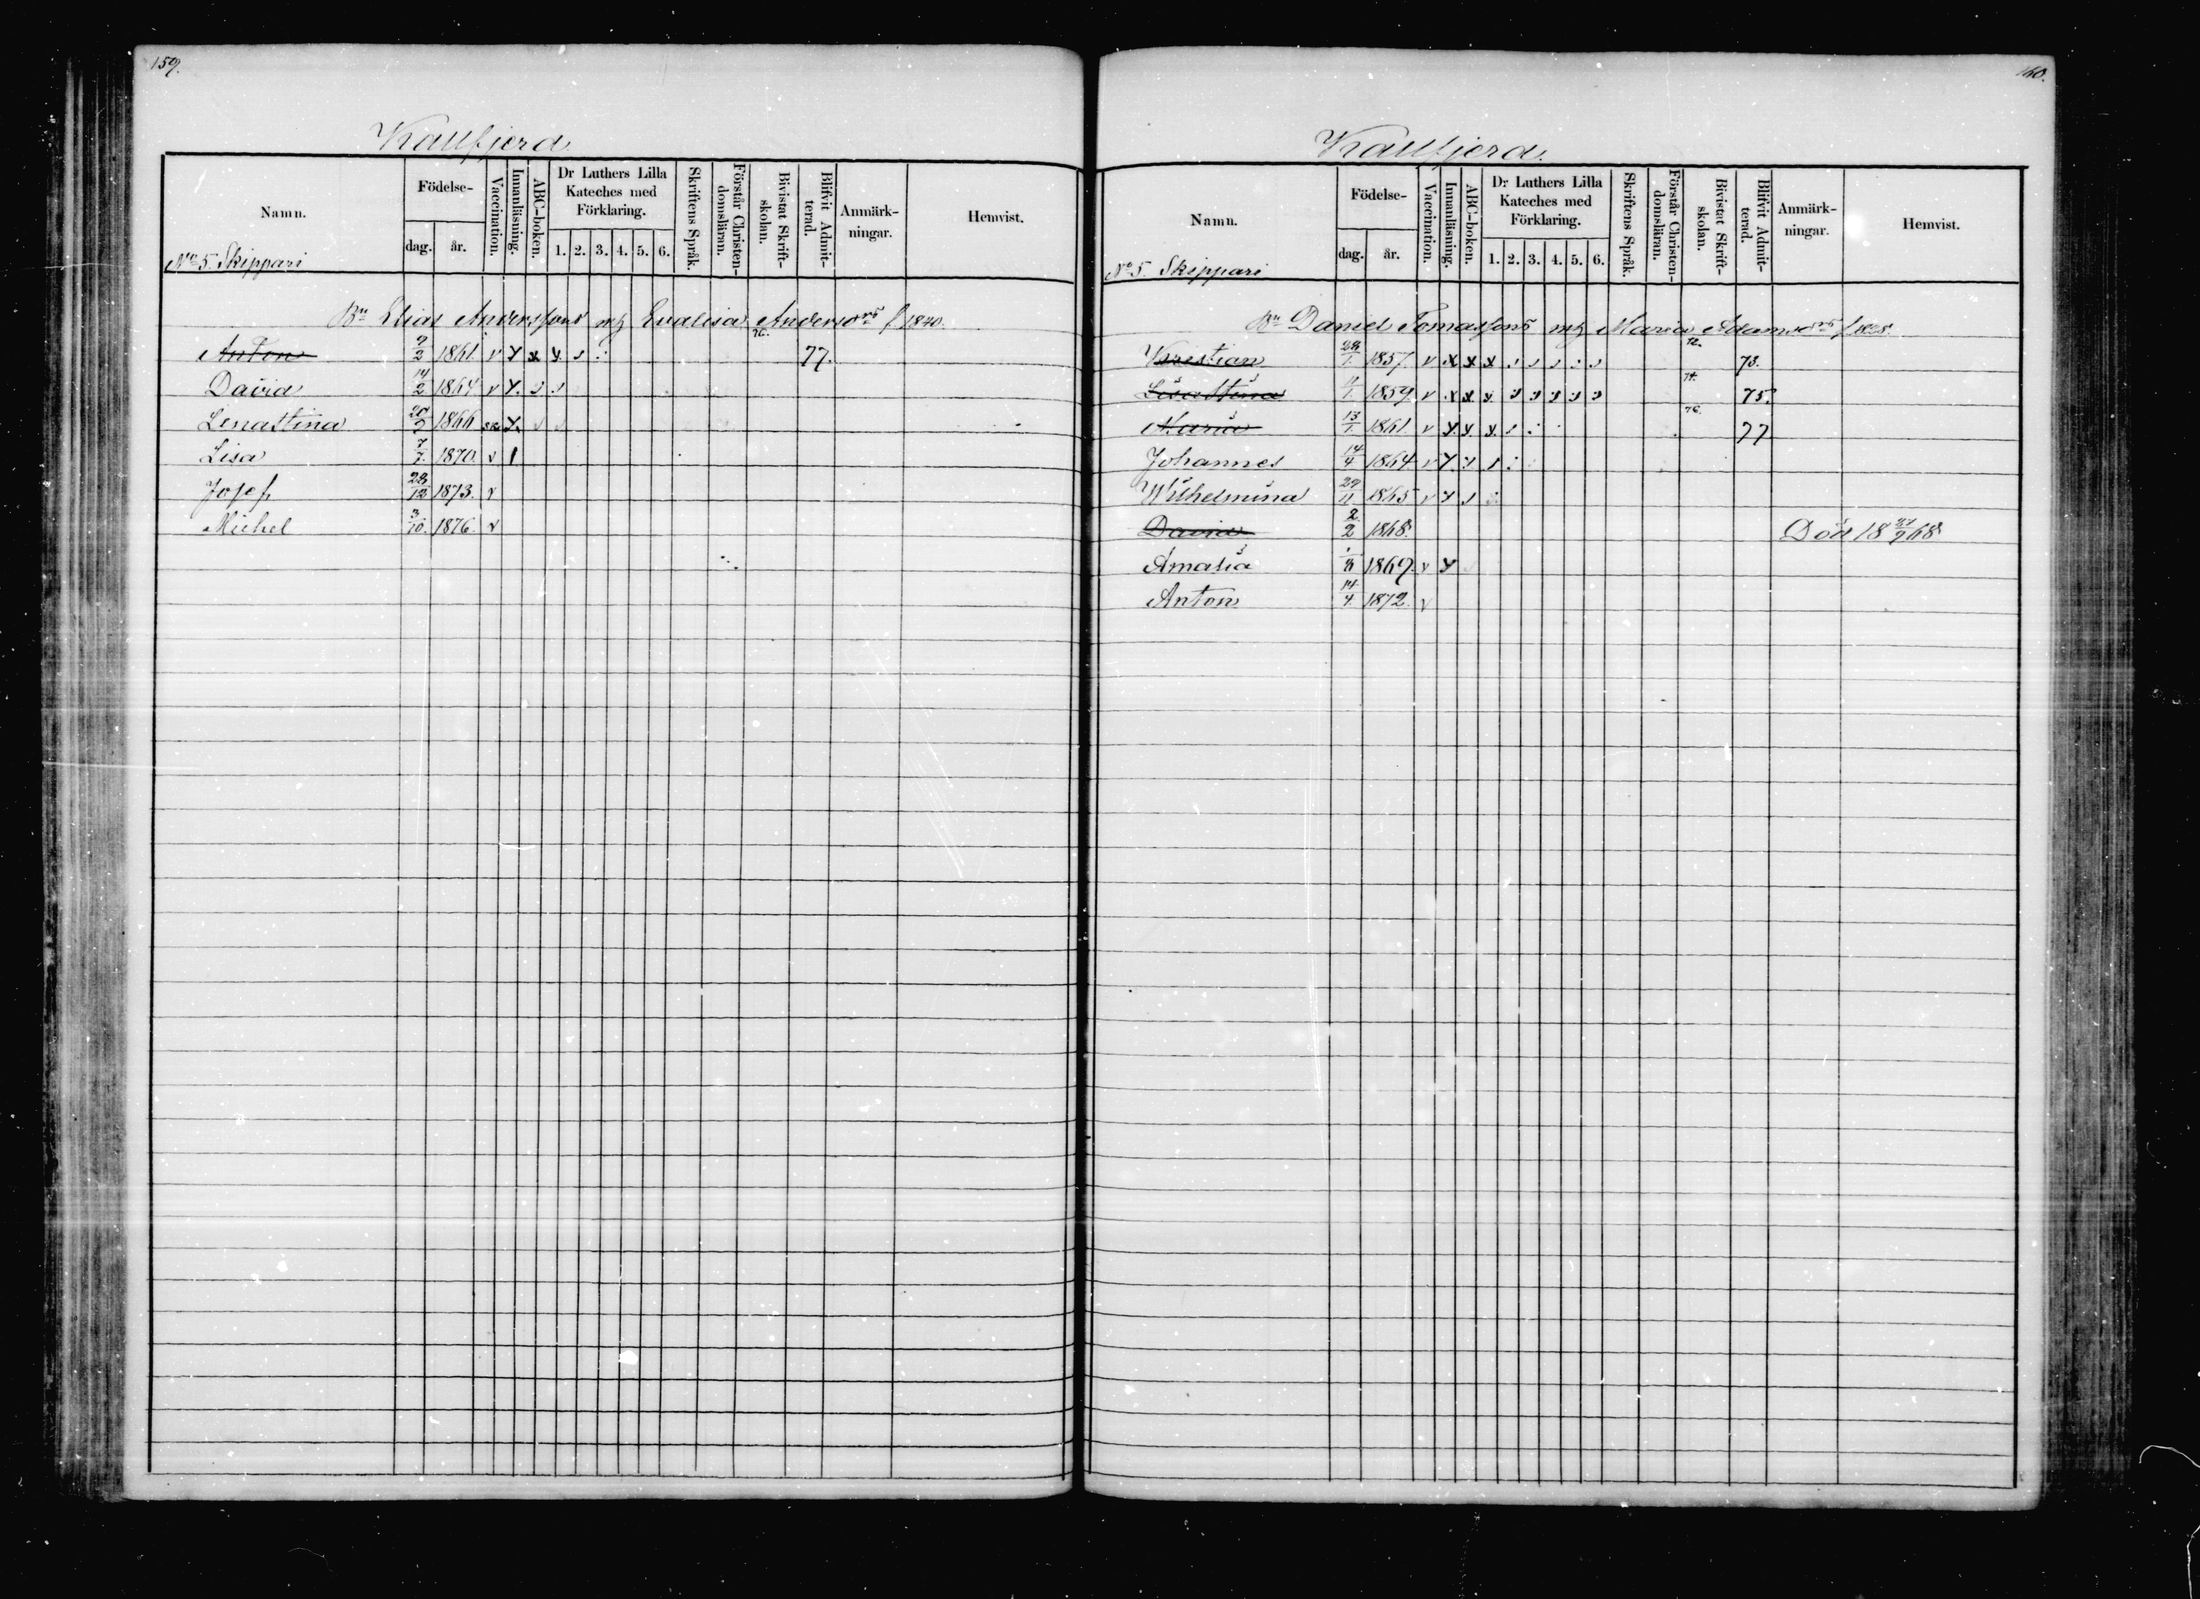 159.
Kallfjerd
Namn.
Födelse-
dag.
år.
Vaccination.
Innanläsning.
ABC-boken.
Dr Luthers Lilla Kateches med Förklaring.
1. 2. 3. 4. 5. 6.
Skriftens Språk.
Förstår Christen-domsläran.
Bivistat Skrift-skolan.
Blifvit Admit-terad.
Anmärk-ningar.
Hemvist.
No 5. Skippari
Bn Elias Anderssons mh Evalisa Andersors f 1840.
Anton 9/2 1861. v 76. 77.
David 14/2 1864 v
Lenastina 20/9 1866
Lisa 7/7. 1870. v
Josef 28/12 1873. v
Michel 3/10. 1876. v
160.
Kallfjerd.
Namn.
Födelse-
dag.
år.
Vaccination.
Innanläsning.
ABC-boken.
Dr Luthers Lilla Kateches med Förklaring.
1. 2. 3. 4. 5. 6.
Skriftens Språk.
Förstår Christen-domsläran.
Bivistat Skrift-skolan.
Blifvit Admit-terad.
Anmärk-ningar.
Hemvist.
No 5. Skippari
Bn Daniel Tomassons mh Maria Adamsors f 1828.
Kristian 28/1. 1857. v x x x 72. 73.
Lisa Stina 1859 v x x x 74. 75.
Maria 13/1. 1861 v 76. 77
Johannes 14/4 1864 v
Wilhelmina 29/11 1865 v
David 2/2 1868. Död 18 27/9 68
Amalia 1869 v
Anton 14/4. 1872. v